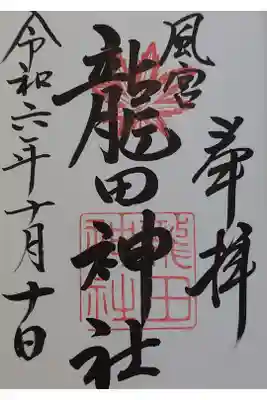 奉拝
風宮
龍田神社
龍田
神社
令和六年十月十日